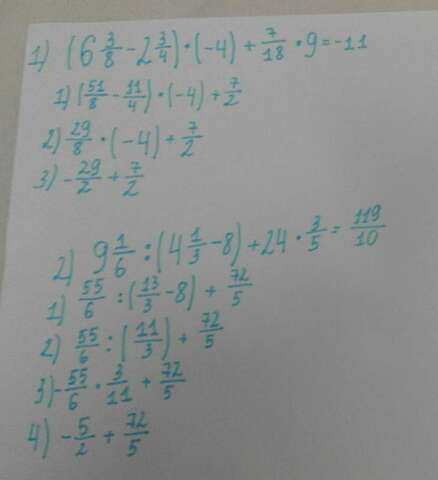 1) (6 3/8 - 2 3/4) · (-4) + 7/18 · 9 = -11
1) (51/8 - 11/4) · (-4) + 7/2
2) 29/8 · (-4) + 7/2
3) - 29/2 + 7/2
2) 9 1/6 : (4 1/3 - 8) + 24 · 3/5 = 119/10
1) 55/6 : (13/3 - 8) + 72/5
2) 55/6 : (11/3) + 72/5
3) - 55/6 · 3/11 + 72/5
4) - 5/2 + 72/5